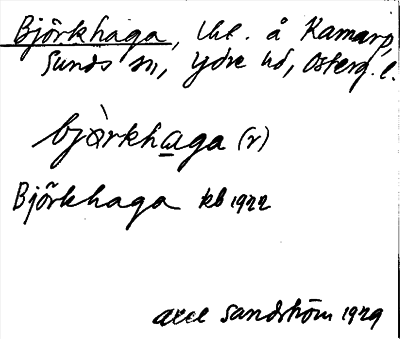 Björkhaga, lht. å Kamarp,
Sunds sn, Ydre hd, Österg. l.
bjòrkhaga (r)
Björkhaga kb 1922
Axel Sandström 1929